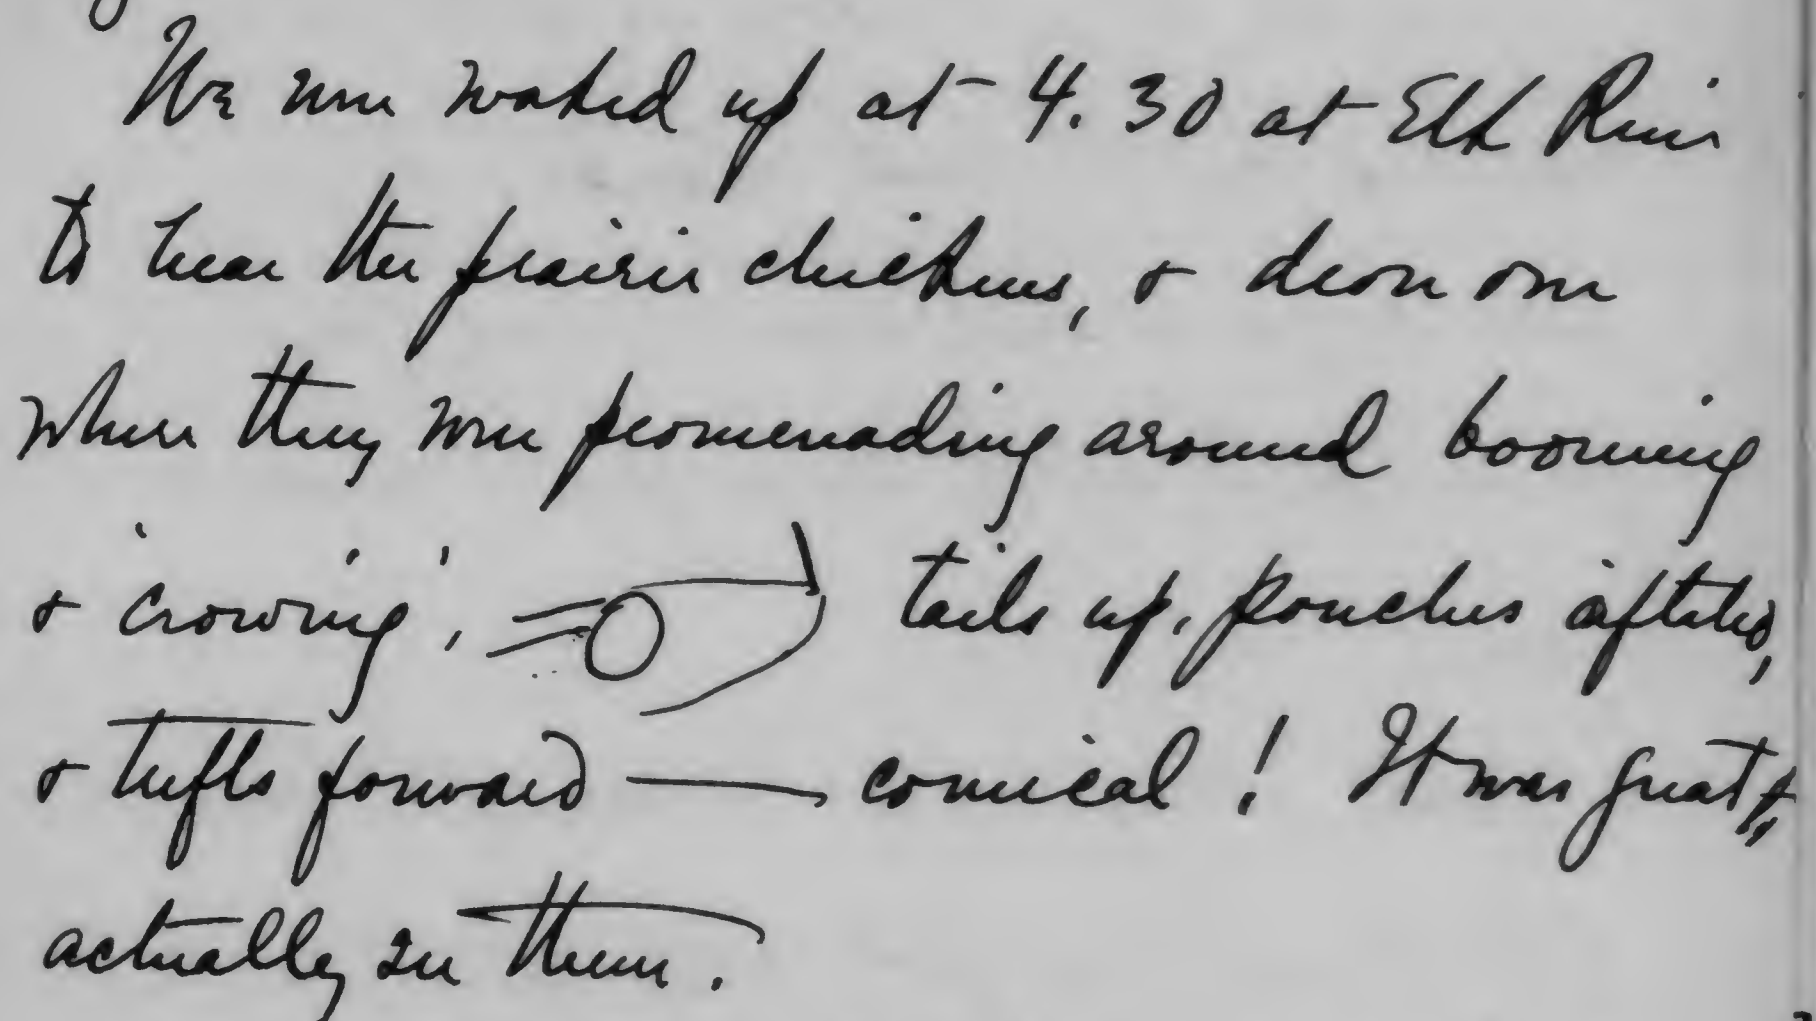 We were waked up at 4.30 at Elk River
to hear the prairie chickens, & drove over
where they were promenading around booming
& 'crowing', tails up, pouches
& tufts forward — comical! It was great to
actually see them.